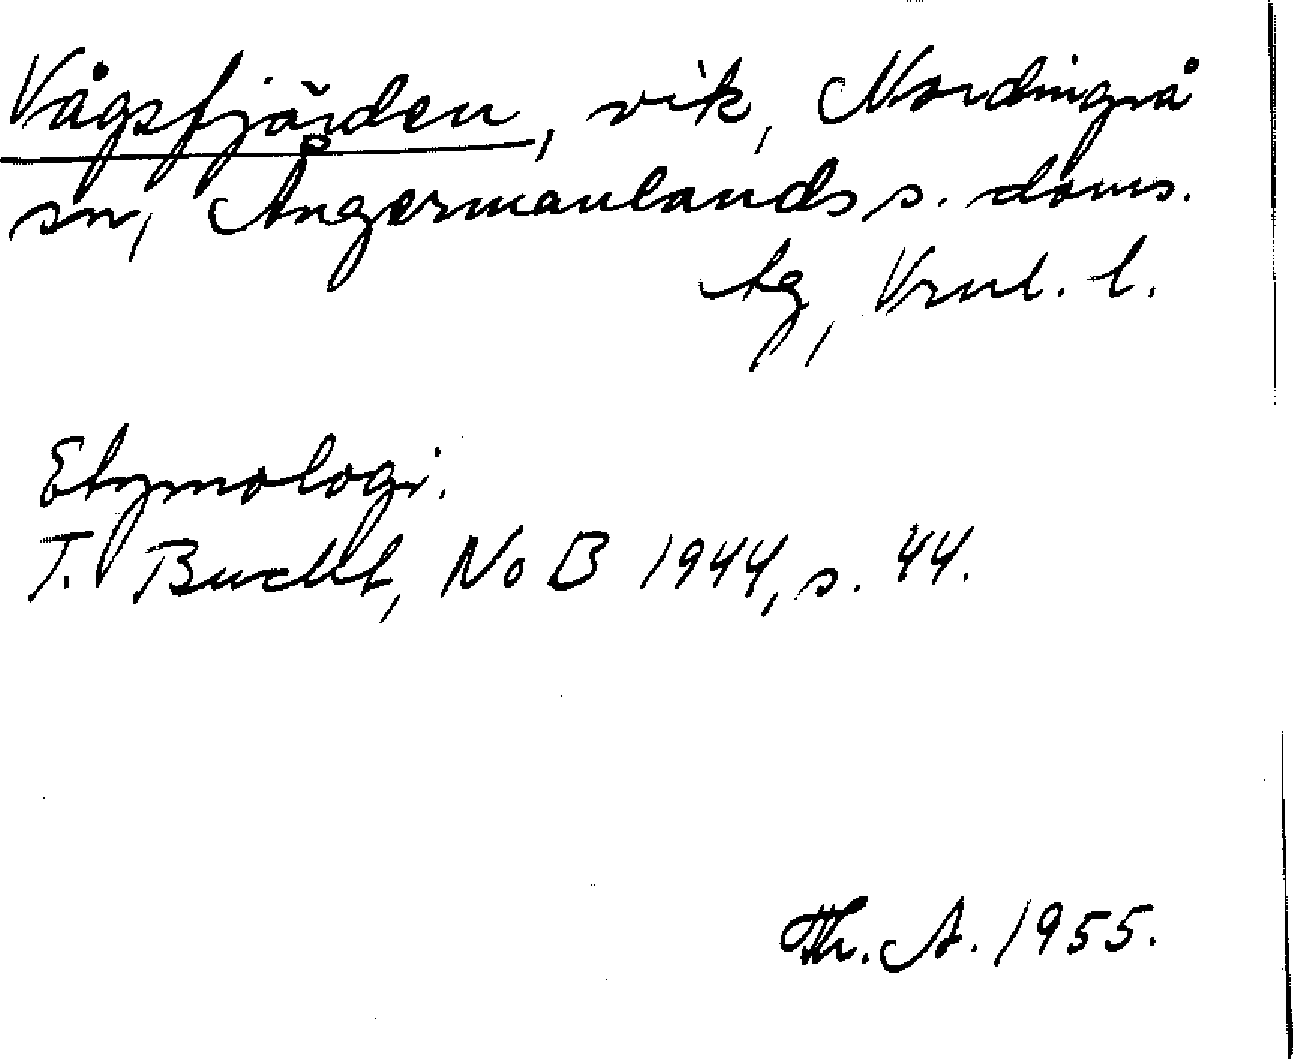 Vågsfjärden, vik, Nordingrå
sn, Ångermanlands s. doms.
tg, Vrnl. l.
Etymologi.
T. Bucht, NoB 1944, s. 44.
Th. A. 1955.